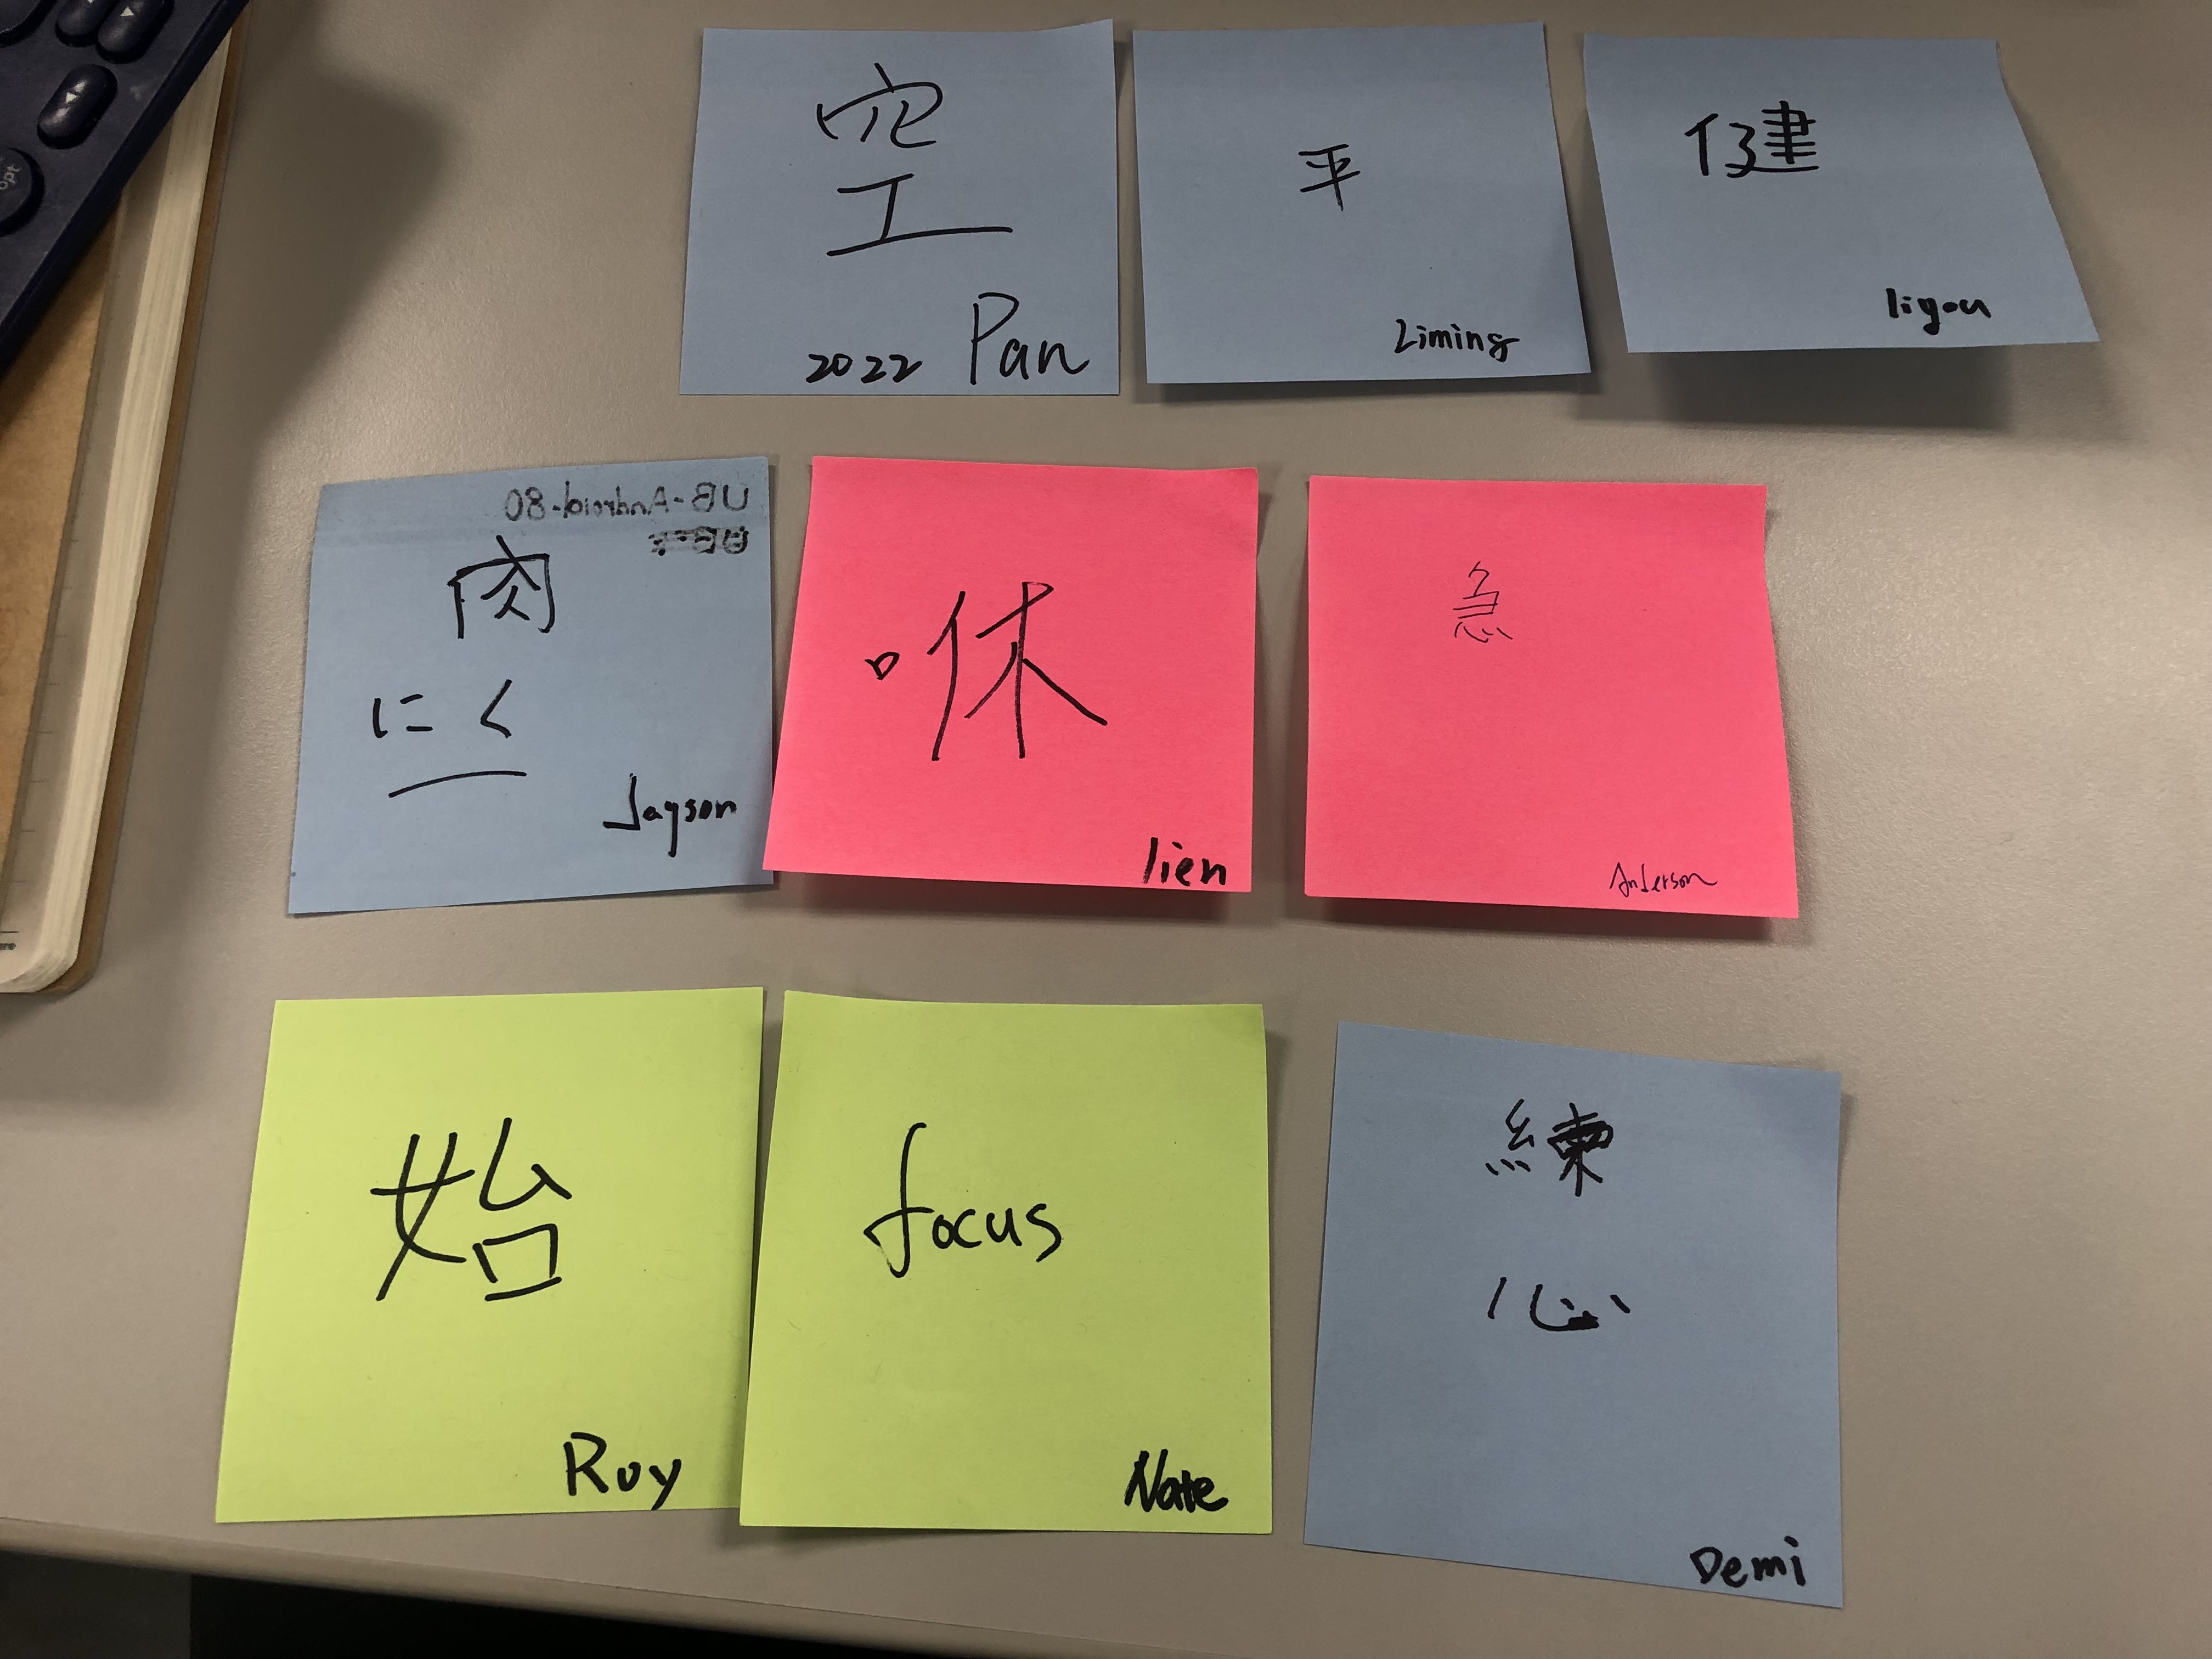 空
2022 Pan
平
Liming
健
ligou
UB-Android-80
肉
にく
Jayson
咻
lien
急
Anderson
始
Roy
focus
Nate
練
心
Demi
opt